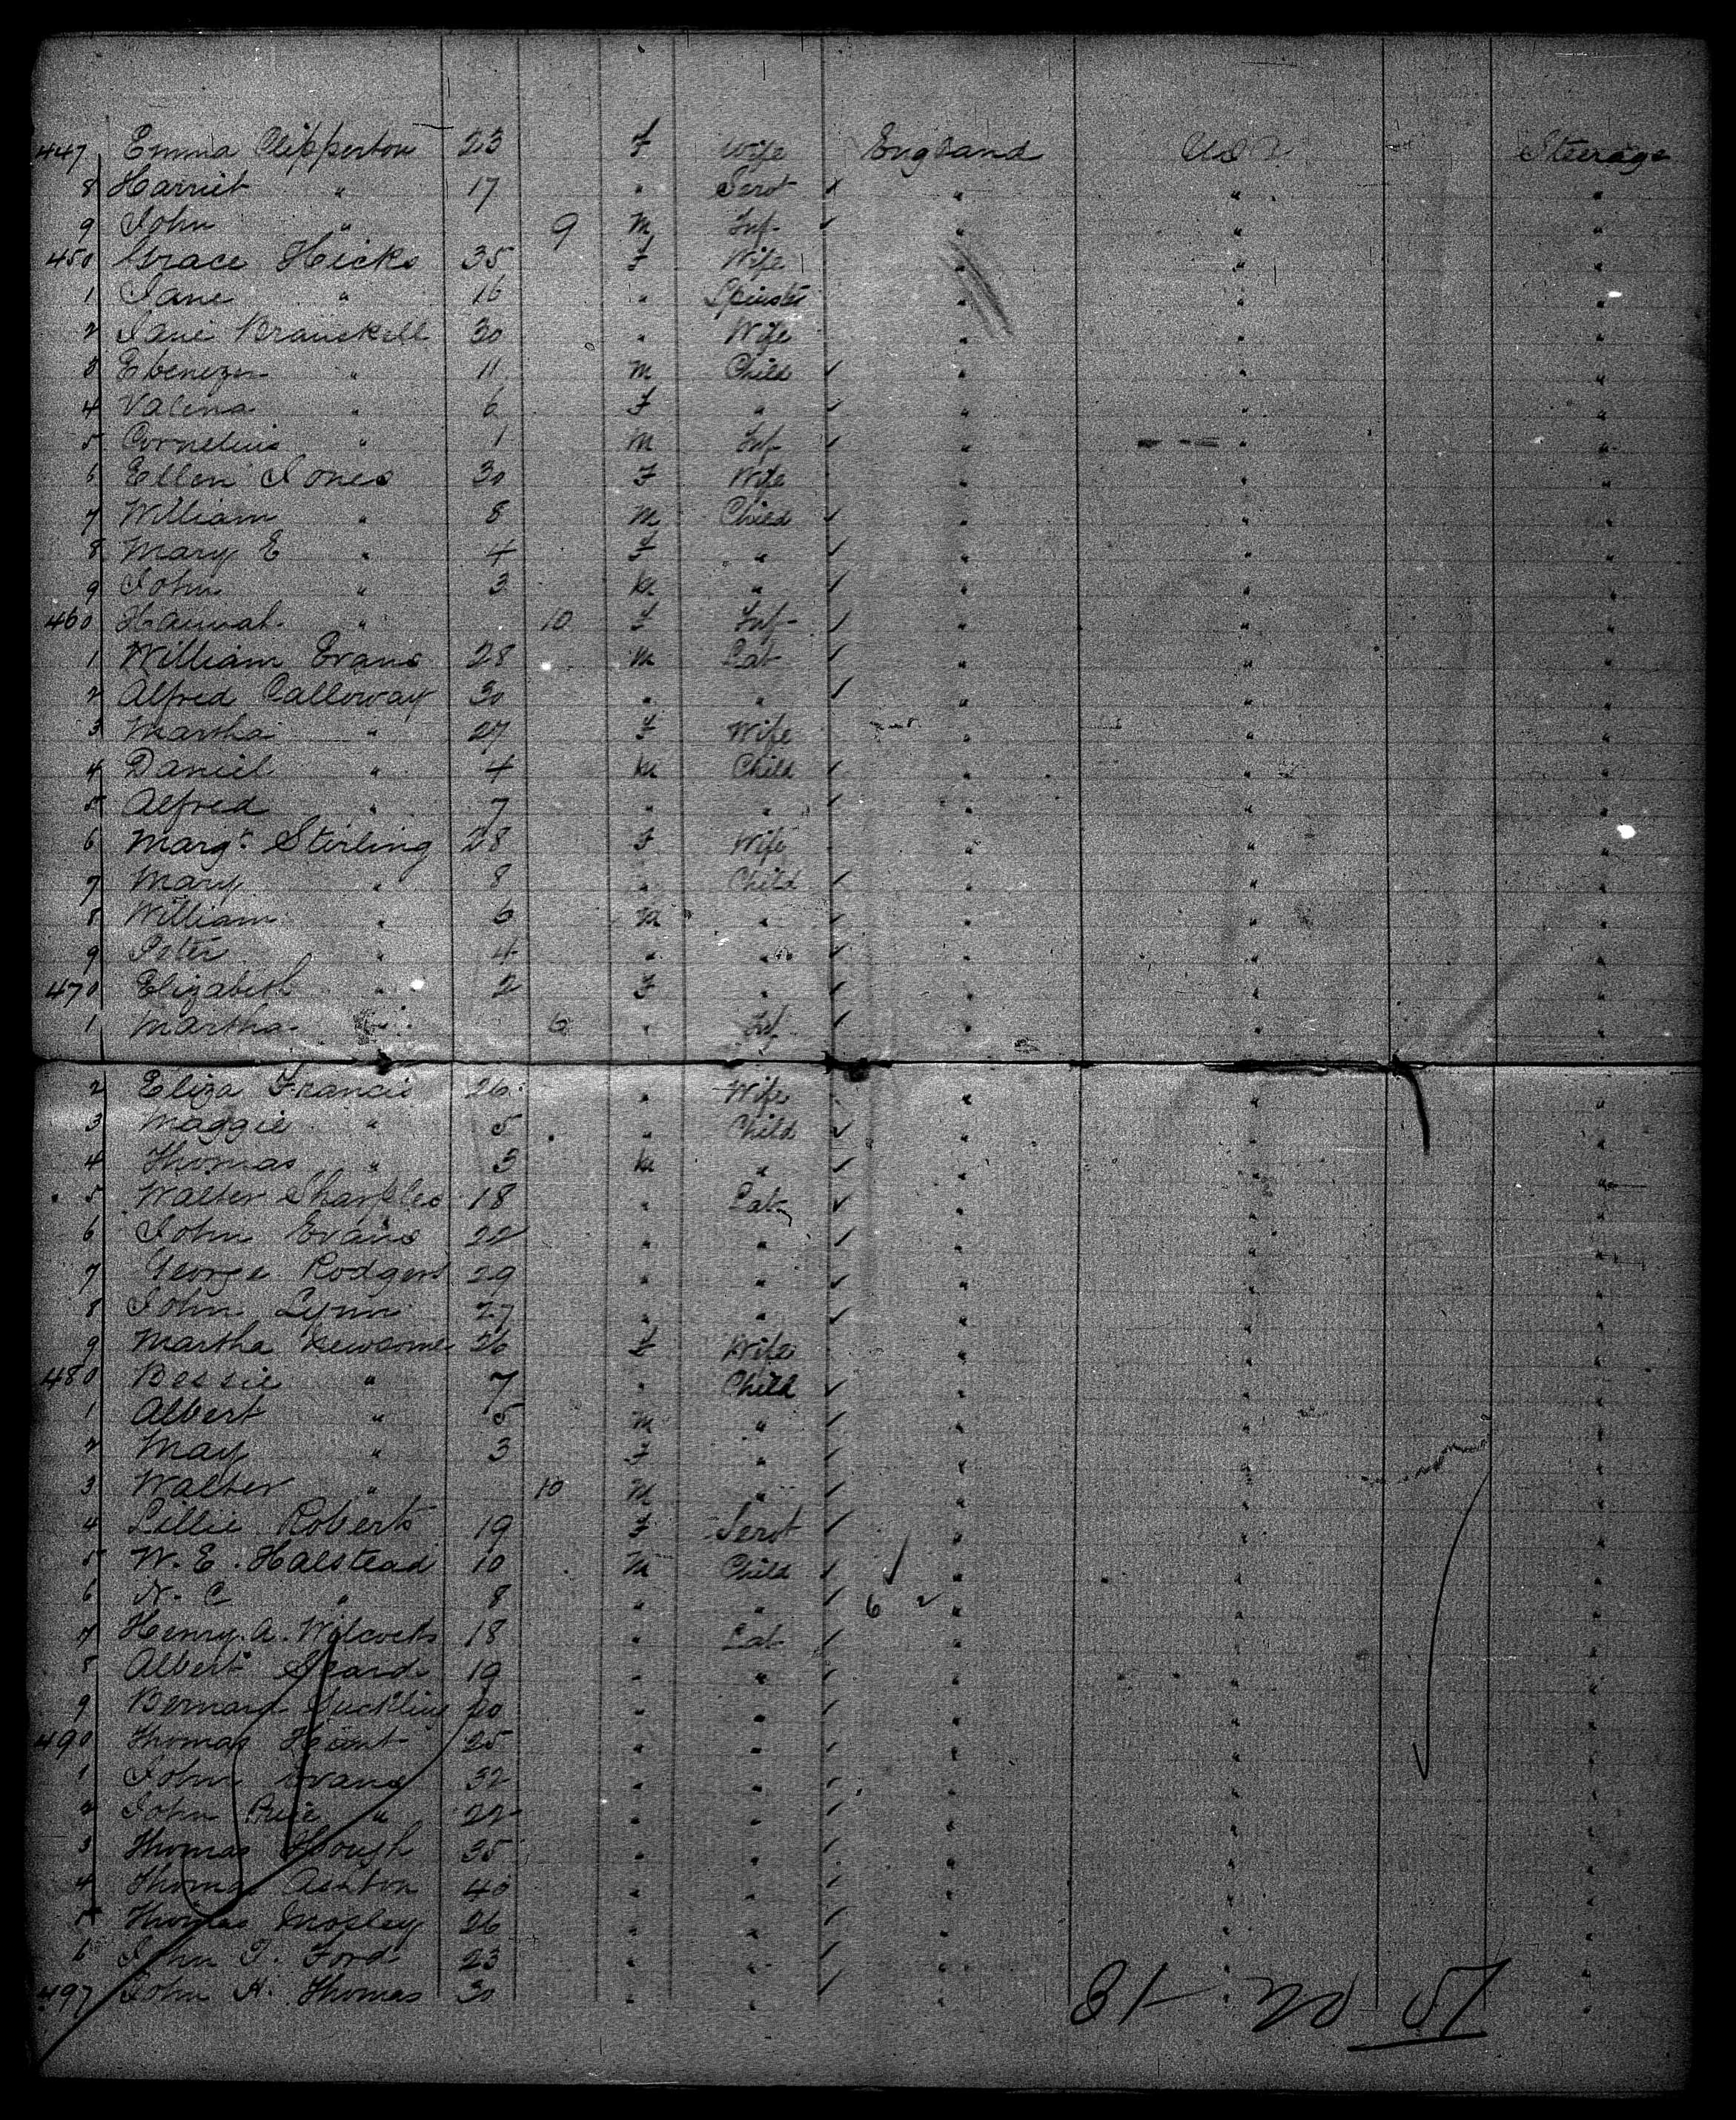 447 Emma Clipperton 23 F Wife England USA Steerage
8 Harriet " 17 " Servt x " " "
9 John " 9 M Inf ✓ " " "
450 Grace Hicks 35 F Wife " " "
1 Jane " 16 " Spinster " " "
2 Jane 30 " Wife " " "
3 Ebenezer " 11 M Child ✓ " " "
4 Valena " 6 F " ✓ " " "
5 Cornelius " 1 M Inf ✓ " " "
6 Ellen Jones 30 F Wife " " "
7 William " 8 M Child ✓ " " "
8 Mary E " 4 F " ✓ " " "
9 John " 3 M " ✓ " " "
460 Hannah " 10 F Inf ✓ " " "
1 William Evans 28 M Lab ✓ " " "
2 Alfred Calloway 30 " " ✓ " " "
3 Martha " 27 F Wife " " "
4 Daniel " 4 M Child ✓ " " "
5 Alfred " 7 " " ✓ " " "
6 Margt Sterling 28 F Wife " " "
7 Mary " 8 " Child ✓ " " "
8 William " 6 M " ✓ " " "
9 Peter " 4 " " ✓ " " "
470 Elizabeth " 2 F " ✓ " " "
1 Martha " 6 " Inf ✓ " " "
2 Eliza Francis 26 " Wife " " "
3 Maggie " 5 " Child ✓ " " "
4 Thomas " 3 M " ✓ " " "
5 Walter Sharples 18 " Lab ✓ " " "
6 John Evans 22 " " ✓ " " "
7 George Rodgers 29 " " ✓ " " "
8 John Lynn 27 " " ✓ " " "
9 Martha Newsome 26 F Wife " " "
480 Bessie " 7 " Child ✓ " " "
1 Albert " 5 M " ✓ " " "
2 May " 3 F " ✓ " " "
3 Walter " 10 M " ✓ " " "
4 Lillie Roberts 19 F Servt ✓ " " "
5 W. E. Halstead 10 M Child ✓ " " "
6 N. C " 8 " " ✓ 6 " " "
7 Henry. A. Wilcocks 18 " Lab ✓ " " "
8 Albert 19 " " ✓ " " "
9 Bernard Suckling 20 " " ✓ " " "
490 Thomas Hunt 25 " " ✓ " " "
1 John Evans 32 " " ✓ " " "
2 John Price " 22 " " ✓ " " "
3 Thomas Hough 35 " " ✓ " " "
4 Thomas Ashton 40 " " ✓ " " "
5 Thomas Mosley 26 " " ✓ " " "
6 John T. Ford 23 " " ✓ " " "
497 John H. Thomas 30 " " ✓ " " "